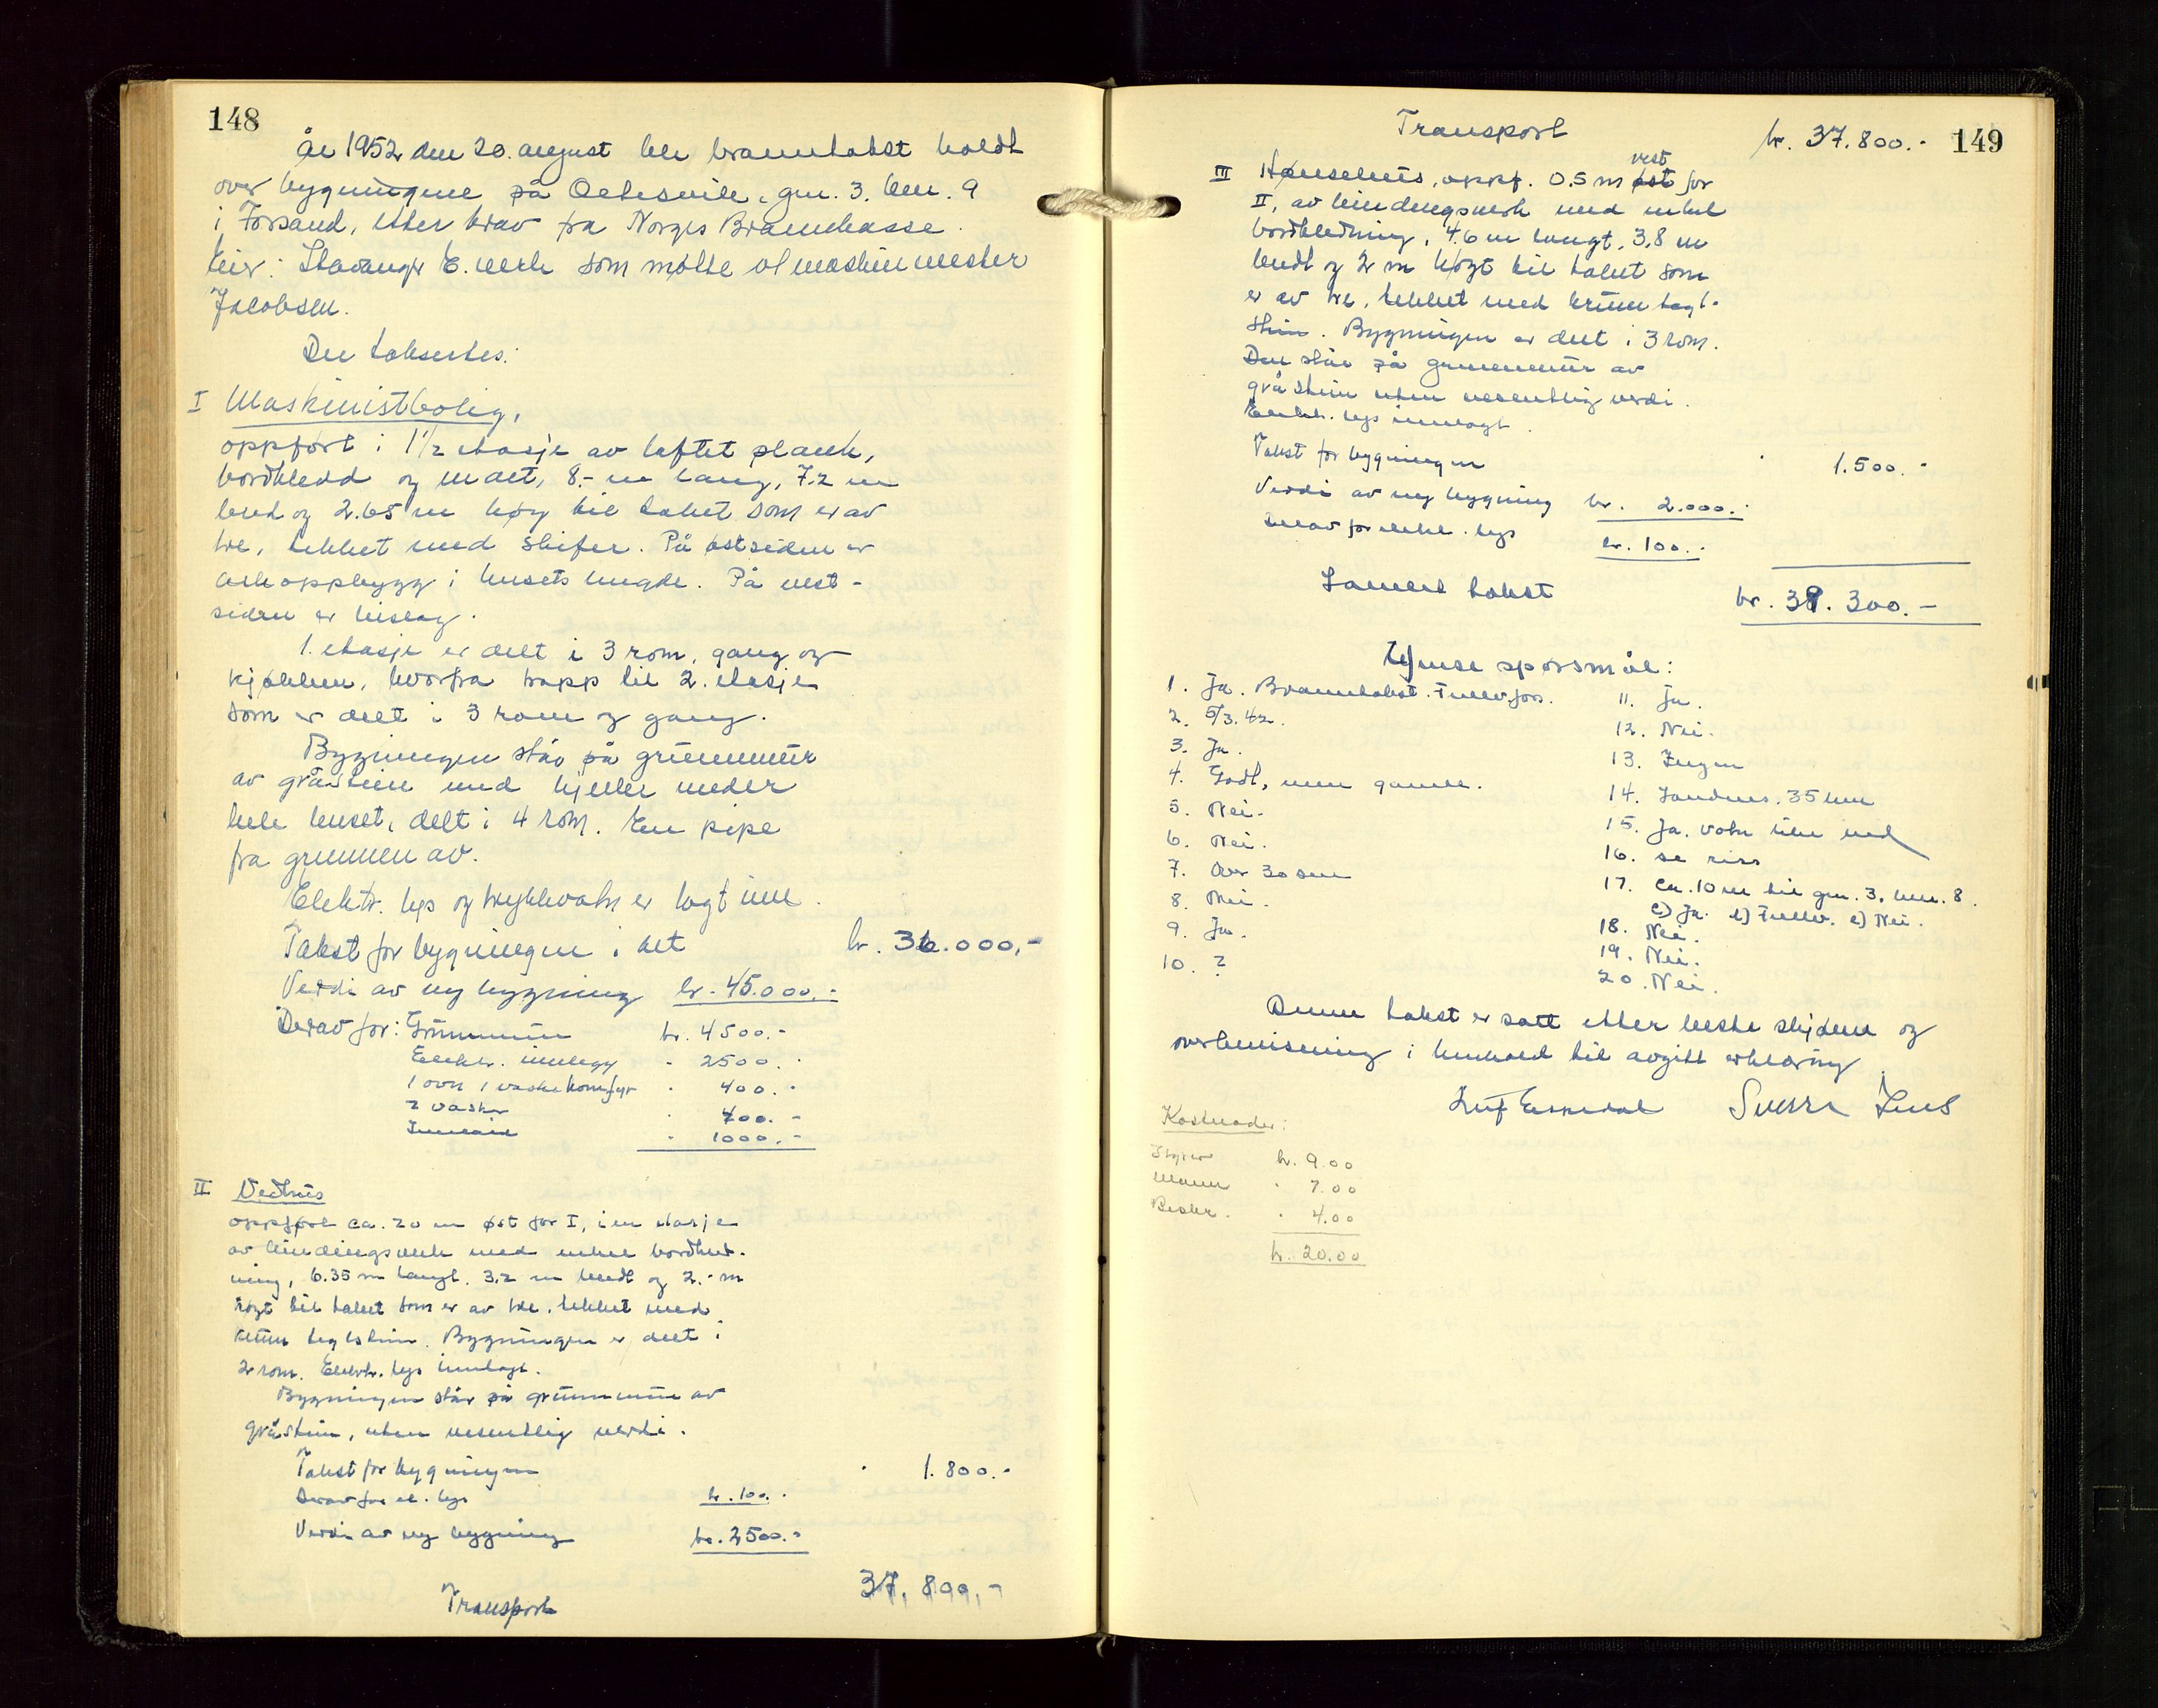 148
År 1952 den 20. august ble branntakst holdt
over bygningene på gnr. 3. bnr. 9
i Forsand, etter krav fra Norges Brannkasse.
Eier: Stavanger E. verk som møtte v/ maskinmester
Jacobsen.
Det takseres:
I Maskinistbolig,
oppført i 1 1/2 etasje av laftet plank,
bordkledd og malt, 8.- m lang, 7.2 m
bred og 2.65 m høy til taket som er av
tre, tekket med skifer. På østsiden er
arkoppbygg i husets lengde. På vest-
siden er bislag.
1. etasje er delt i 3 rom, gang og
kjøkken, hvorfra trapp til 2. etasje
som er delt i 3 rom og gang.
Bygningen står på grunnmur
av gråstein med kjeller under
hele huset, delt i 4 rom. En pipe
fra grunnen av.
Elektr. lys og trykkvatn er lagt inn.
Takst for bygningen i alt kr. 36.000,-
Verdi av ny bygning kr. 45.000.-
Derav for: Grunnmur kr. 4500.-
Elektr. innlegg " 2500.-
1 ovn 1 vaskekomfyr " 400.-
2 vasker " 400.-
" 1000.-
II Vedhus
oppført ca. 20 m øst for I, i en etasje
av bindingsverk med enkel bordkled-
ning, 6.35 m langt. 3.2 m bredt og 2.- m
høgt til taket som er av tre, tekket med
krum teglstein. Bygningen er delt i
2 rom. Elektr. lys innlagt.
Bygningen står på grunnmur av
gråstein, uten vesentlig verdi.
Takst for bygningen " 1.800.-
Derav for el. lys kr. 100.-
Verdi av ny bygning kr. 2500.-
Transport 37.800,-
Transport kr. 37.800.- 149
III Hønsehus, oppf. 0.5 m øst vest for
II, av bindingsverk med enkel
bordkledning, 4.6 m langt, 3,8 m
bredt og 2 m høgt til taket som
er av tre, tekket med krum tegl-
stein. Bygningen er delt i 3 rom.
Den står på grunnmur av
gråstein uten vesentlig verdi.
Elektr. lys innlagt.
Takst for bygningen " 1.500.-
Verdi av ny bygning kr. 2.000.-
Derav for elektr. lys kr. 100.-
Samlet takst kr. 39.300.-
Ymse spørsmål:
1. Ja. Branntakst. Fullv.fors.
2. 5/3. 42.
3. Ja.
4. Godt, men gamle.
5. Nei.
6. Nei.
7. Over 30 cm
8. Nei.
9. Ja.
10. ?
11. Ja.
12. Nei.
13. Ingen
14. Sandnes. 35 km
15. Ja. vatn like ved
16. se riss
17. ca. 10 m til gnr. 3. bnr. 8.
c) Ja. d) Fullv. e) Nei.
18. Nei.
19. Nei.
20. Nei.
Denne takst er satt etter beste skjønn og
overbevisning i henhold til avgitt erklæring
Leif Eskedal Sverre
Kostnader:
Styrer kr. 9.00
Mann " 7.00
" 4.00
kr. 20.00